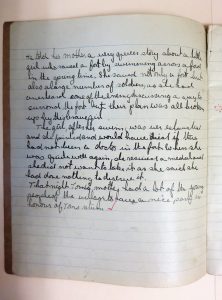 to tell his mother a very queer story about a little
girl who saved a fort by swimming across a ford
in the spring time. She saved not only a fort but
also a large number of soldiers, as she had
overheard some of the enemy discussing a way to
surround the fort but their plan was all broken
up by the brave girl.
The girl after her swim, was very exhausted
and she would have died if there
had not been a doctor in the fort. When she
was quite well again, she received a medal and
she did not want to take it as she said she
had done nothing to deserve it.
That night Tom's mother had a lot of the young
people of the village to have a nice party in
honour of Tom's return.